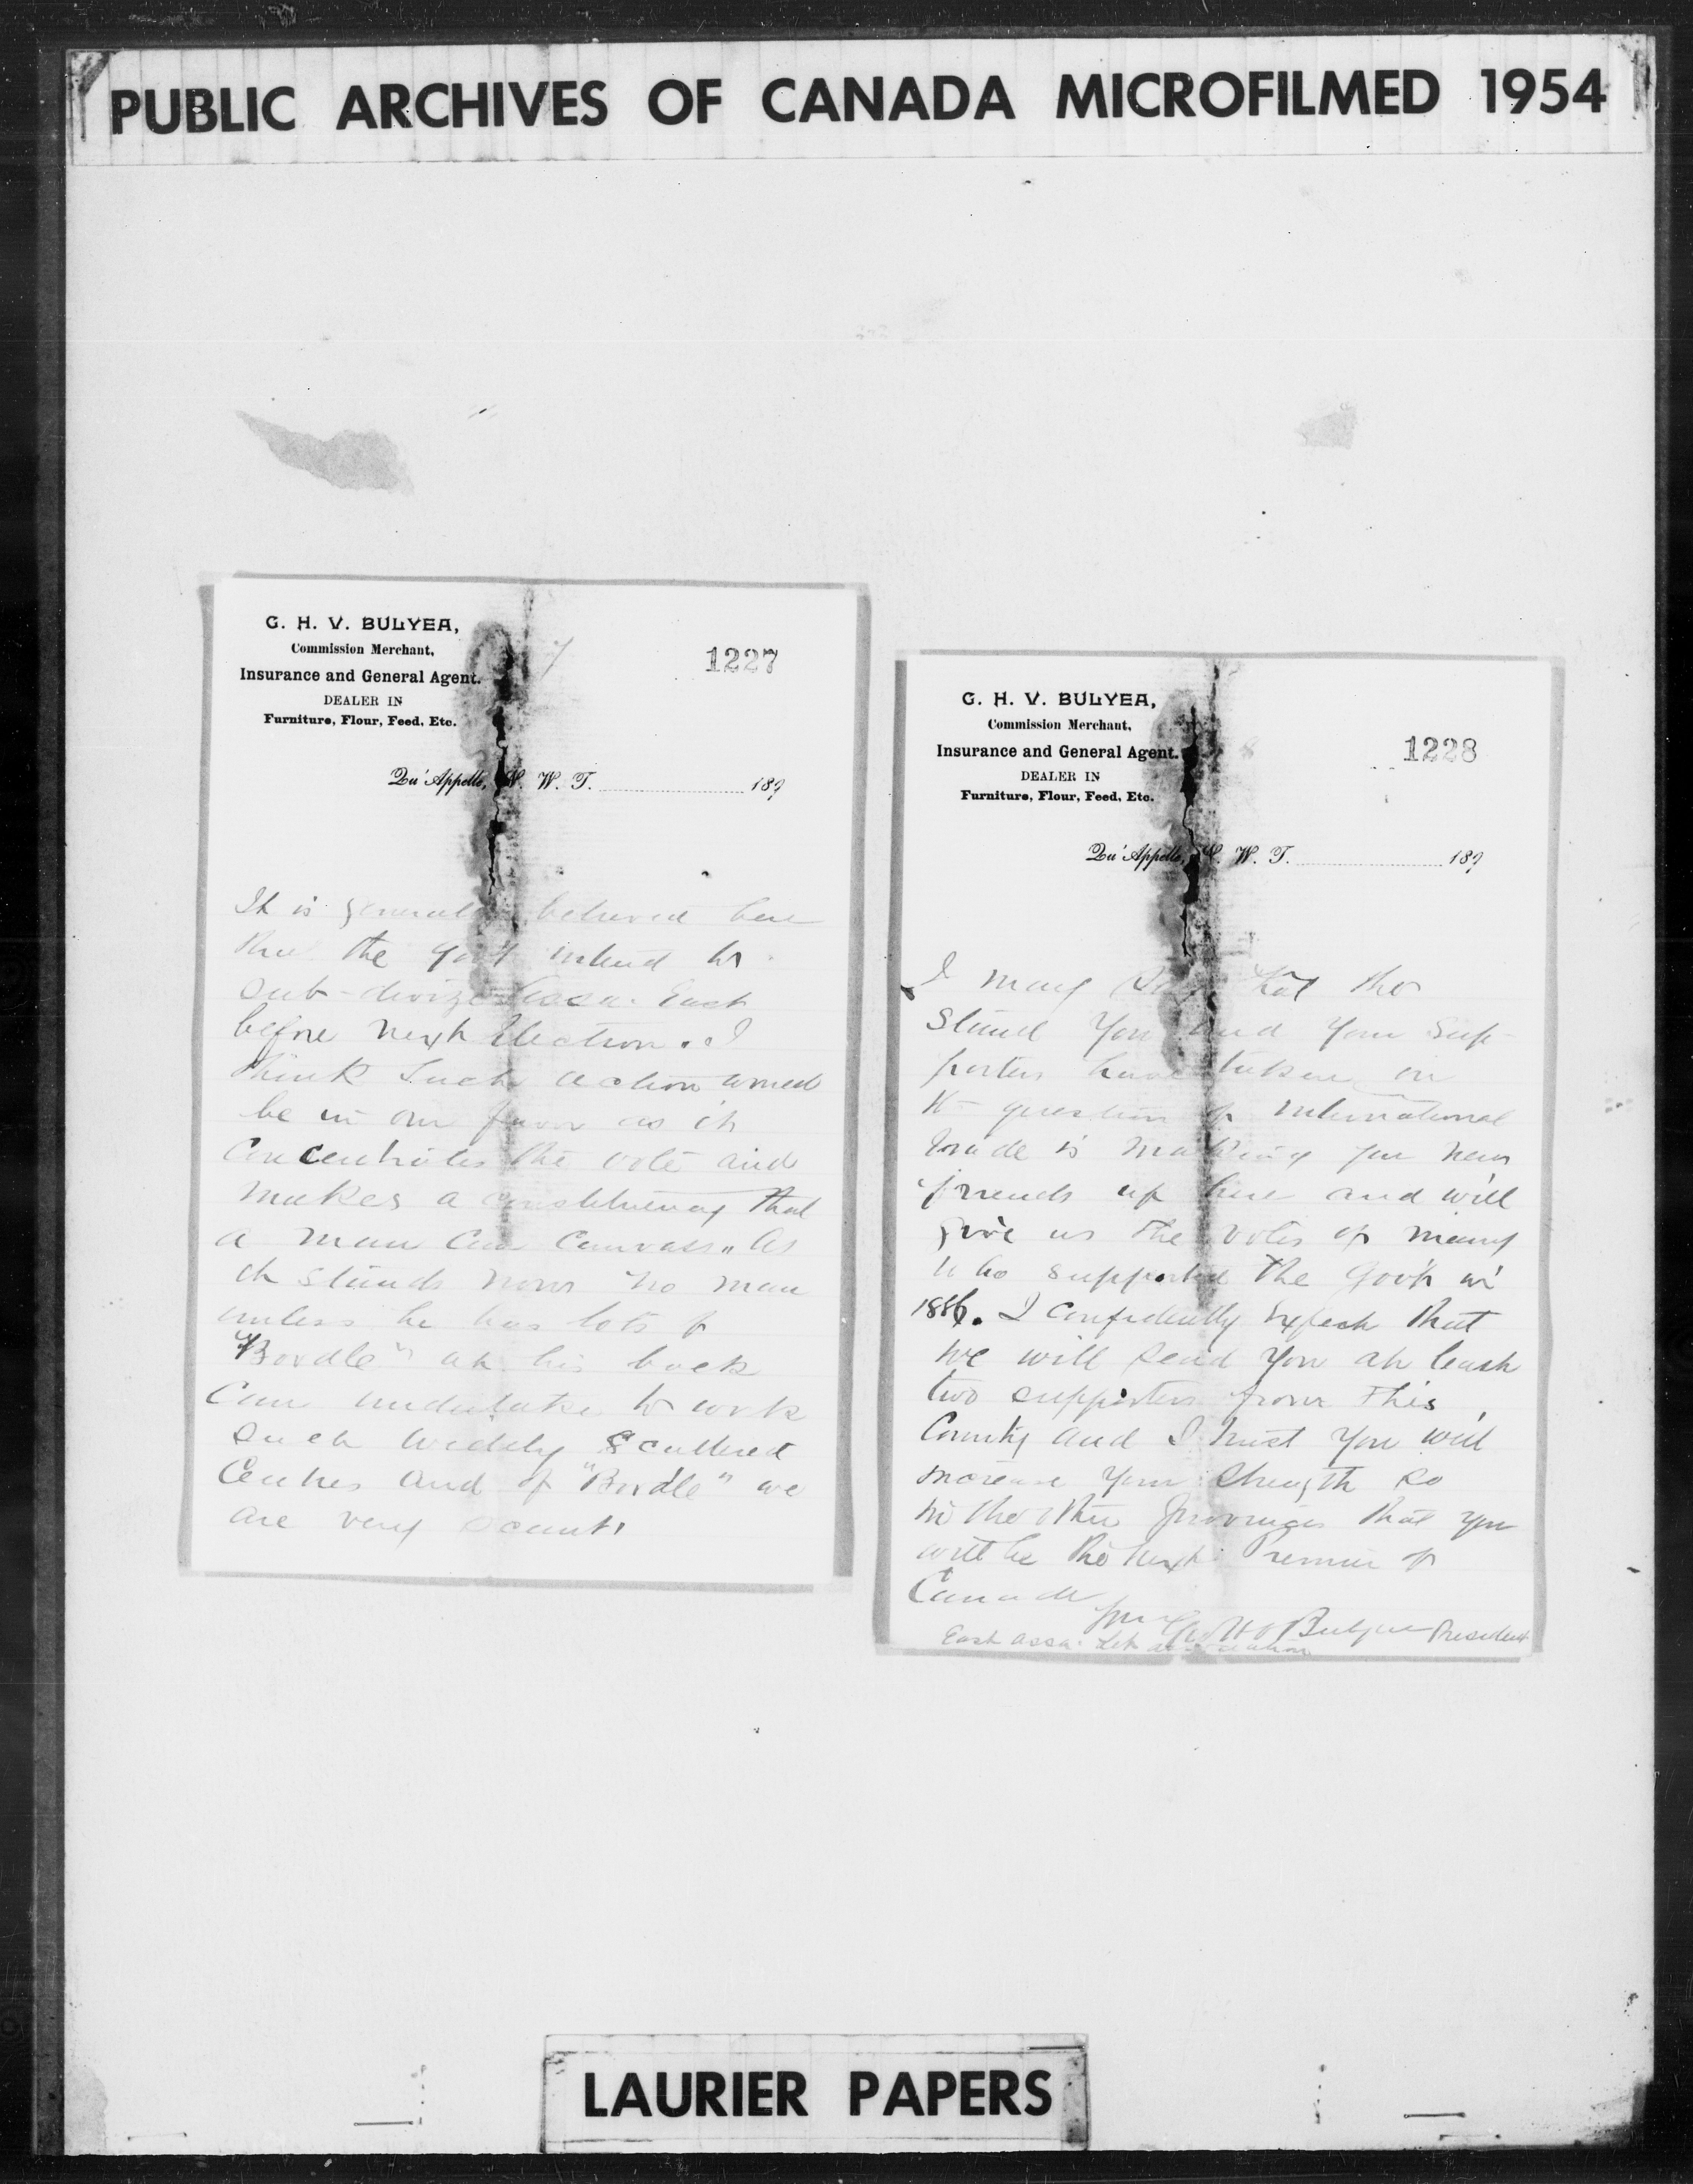 PUBLIC ARCHIVES OF CANADA MICROFILMED 1954
G. H. V. BULYEA,
Commission Merchant,
Insurance and General Agent.
DEALER IN
Furniture, Flour, Feed, Etc.
1227
Qu'Appelle, N. W. T. 189
It is generally believed here
that the Govt intend to
sub-divize Assa. East
before next Election. I
think such action would
be in our favor as it
concentrates the vote and
makes a constituency that
a man can canvass. As
it stands now no man
unless he has lots of
"Boodle" at his back
can undertake to work
such widely scattered
centres and of "Boodle" we
are very scant.
G. H. V. BULYEA,
Commission Merchant,
Insurance and General Agent.
DEALER IN
Furniture, Flour, Feed, Etc.
1228
Qu'Appelle, N. W. T. 189
I may say that the
stand you and your sup-
porters have taken on
question of international
trade is making you new
friends up here and will
give us the votes of many
who supported the Gov't in
1886. I confidently expect that
we will send you at least
two supporters from this
County and I trust you will
increase your strength so
in the other provinces that you
will be the next Premier of
Canada
Yours Geo H V Bulyea President
East Assa. Lib association
LAURIER PAPERS